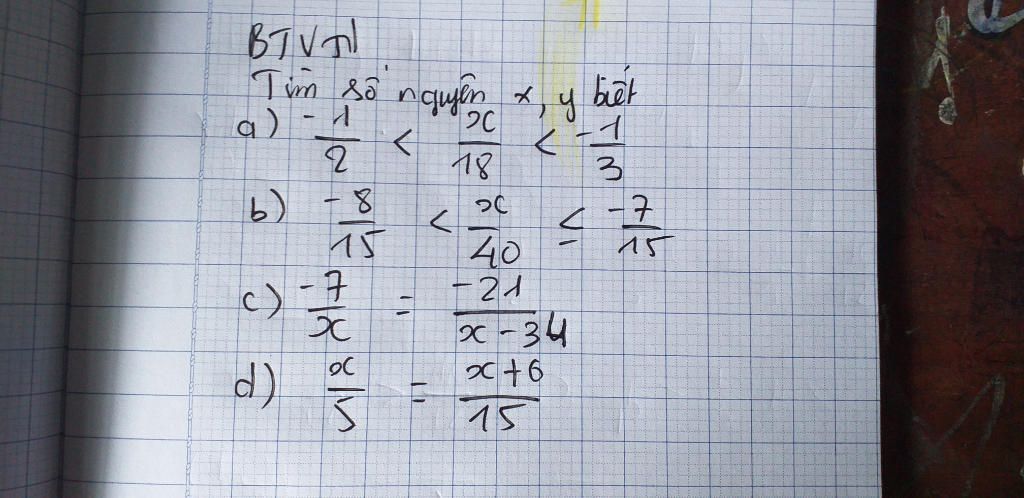 BTVN
Tìm số nguyên x, y biết
a) -1/2 < x/18 < -1/3
b) -8/15 < x/40 ≤ -7/15
c) -7/x = -21/x-34
d) x/5 = x+6/15